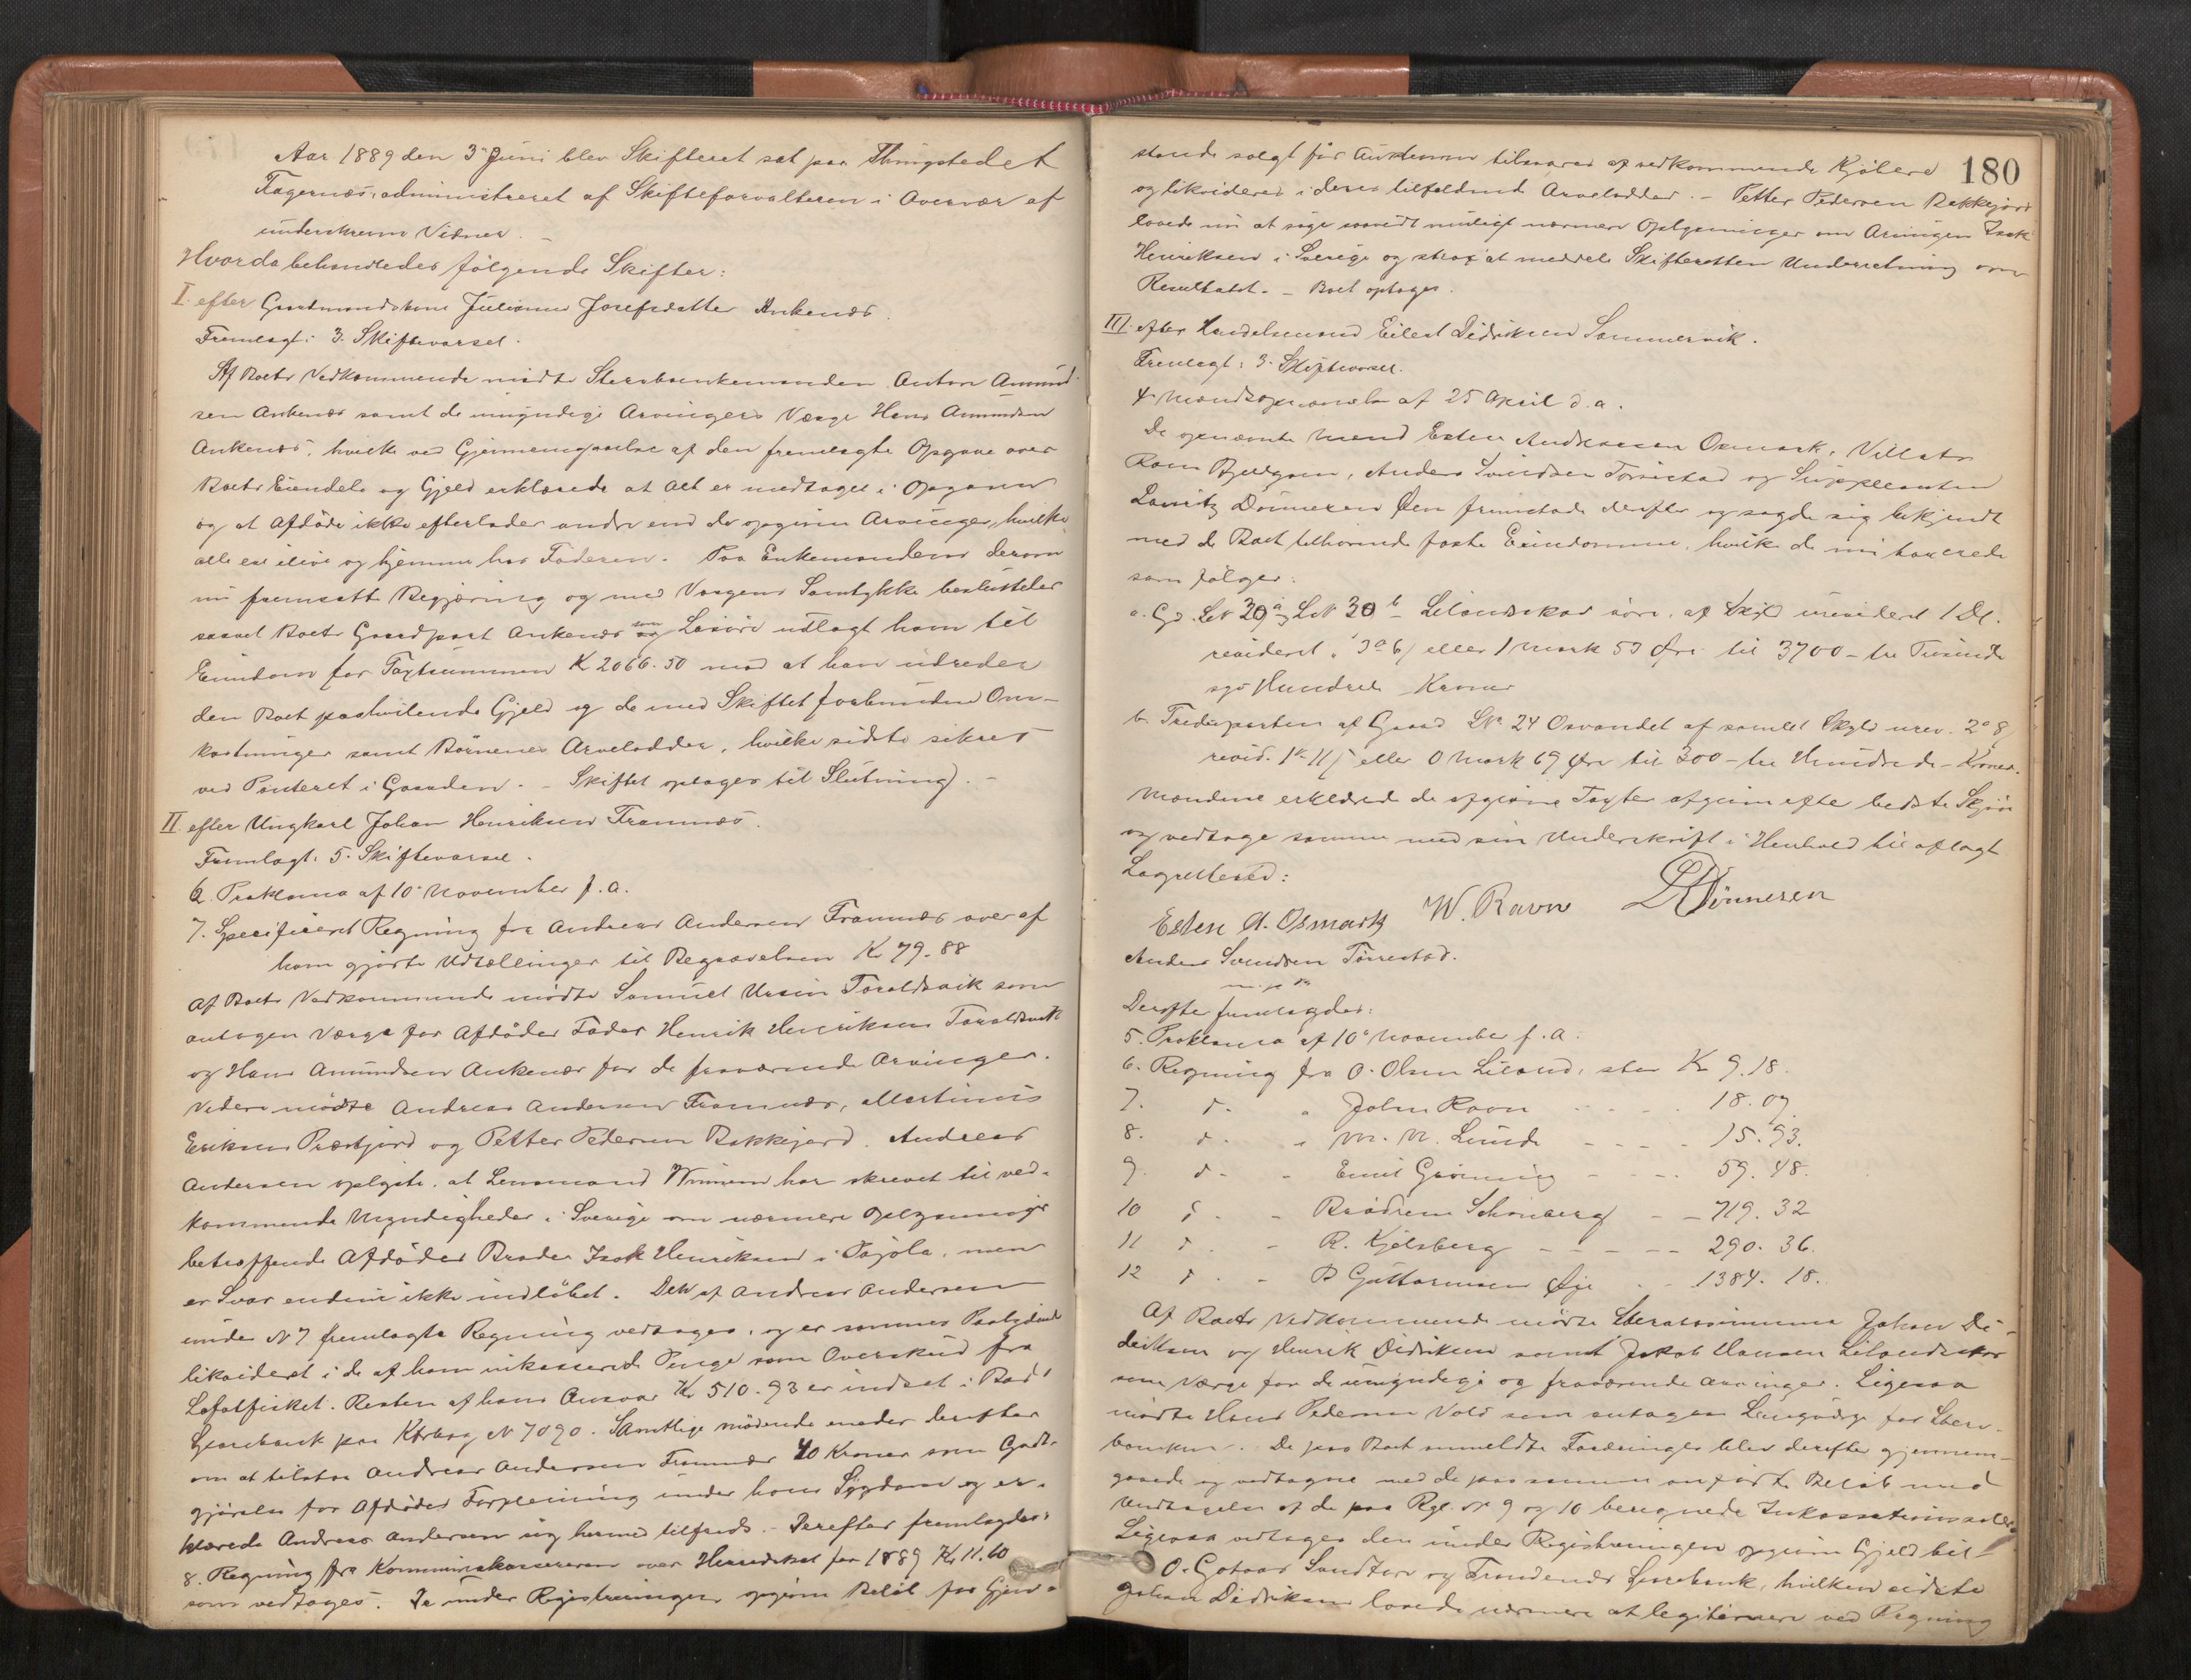 Aar 1889 den 3 Juni blev Skifteret sat paa Thingstedet
Fagernæs, administreret af Skifteforvalteren i Overvær af
underskrevne Vidner.
Hvorda behandledes følgende Skifter:
I. efter Gaardmandskone Julianna Josefsdatter Ankenæs.
Fremlagt: 3. Skiftevarsel.
Af Boets Vedkommende mødte Stervboenkemanden Anton Amund-
sen Ankenæs samt de umyndige Arvingers Værge Hans Amundsen
Ankenæs, hvilke ved Gjennemgaaelse af den fremlagte Opgave over
Boets Eiendele og Gjeld erklærede at alt er medtaget i Opgaven
og at Afdøde ikke efterlader andre end de opgivne Arvinger, hvilke
alle ere ilive og hjemme hos Faderen. Paa Enkemandens derom
nu fremsatte Begjæring og med Værgens Samtykke besluttedes
saavel Boets Gaardpart Ankenæs som Løsøre udlagt ham til
Eiendom for Taxtsummen K 2066.50 mod at han udreder
den Boet paahvilende Gjeld og de med Skiftet forbundne Om-
kostninger samt Børnenes Arvelodder, hvilke sidste sikres
ved Panteret i Gaarden. - Skiftet optages til Slutning. -
II. efter Ungkarl Johan Henriksen Framnæs.
Fremlagt: 5. Skiftevarsel.
6. Proklama af 10 November f.a.
7. Specificeret Regning fra Andreas Andersen Framnæs over af
ham gjorte Udtællinger til Begravelsen Kr 79.88
Af Boets Vedkommende mødte Samuel Ursin Taraldsvik som
antagen Værge for Afdødes Fader Henrik Henriksen Taraldsvik
og Hans Amundsen Ankenæs for de fraværende Arvinger.
Videre mødte Andreas Andersen Framnæs, Martinus
Eriksen Præstjord og Petter Pedersen Bakkejord. Andreas
Andersen oplyste, at Lensmand Winnem har skrevet til ved-
kommende Myndigheder i Sverige om nærmere Oplysninger
betræffende Afdødes Broder Isak Henriksen i Pajola, men
er Svar endnu ikke indløbet. Den af Andreas Andersen
under N 7 fremlagte Regning vedtages, og er sammes Paalydende
likvideret i de af ham inkasserede Penge som Overskud fra
Lofotfisket. Resten af hans Ansvar Kr 510.93 er indsat i Bodø
Sparebank paa Kvbog N 7090. Samtlige mødende enedes derefter
om at tilstaa Andreas Andersen Framnæs 40 Kroner som Godt-
gjørelse for Afdødes Forpleining under hans Sygdom og er-
klærede Andreas Andersen sig hermed tilfreds. - Derefter fremlagdes:
8. Regning fra Kommunekassereren over Herredsskat for 1889 Kr 11.60
som vedtages. De under Registreringen opgivne Beløb for Gjen-
180
stande solgt før Auktionen tilsvares af vedkommende Kjøbere
og likvideres i deres tilfaldende Arvelodder. - Petter Pedersen Bakkejord
lovede nu at søge saavidt muligt nærmere Oplysninger om Arvingen Isak
Henriksen i Sverige og strax at meddele Skifteretten Underretning om
Resultatet. - Boet optages.
III. efter Handelsmand Eilert Didriksen Sommervik.
Fremlagt: 3. Skiftevarsel.
4. Mandsopnævnelse af 25 April d.a.
De opnævnte Mænd Esten Andreassen Osmark, Villats
Ravn Bjellgren, Anders Svendsen Tørrestad og Suppleanten
Lauritz Dønnesen Øien fremstode derefter og sagde sig bekjendt
med de Boet tilhørende faste Eiendomme, hvilke de nu taxerede
som følger:
a. Gd. Lnr 30a og Lnr 30b Lilandskar søre, af Skyld urevideret 1 Dl.
revideret 3 6/ eller 1 Mark 53 Øre til 3700 - tre Tusinde
syv Hundrede Kroner
b. Trediparten af Gaard LNr 24 Osvandet af samlet Skyld urev. 2 8/
revid. 1 11/ eller 0 Mark 69 Øre til 300 - tre Hundrede - Kroner.
Mændene erklærede de afgivne Taxter afgivne efter bedste Skjøn
og vedtage samme med sin Underskrift i Henhold til aflagt
Lagretteed:
Esten A. Osmark W. Ravn L Dønnesen
Anders Svendsen Tørrestad.
m. p. P.
Derefter fremlagdes:
5. Proklama af 10 November f.a.
6. Regning fra O. Olsen Liland, stor Kr 9.18.
7. d. " John Ravn - - - 18.07
8. d. " M. N. Lund - - - 15.93.
9. d. - Emil Grønning - - - 59.48.
10 d. - Brødrene Schønberg - - 719.32
11 d. - R. Kjelsberg - - - - - 290.36.
12 d. - P Guttormsen Øje - - 1384.18.
Af Boets Vedkommende mødte Stervbosønnerne Johan Di-
driksen og Henrik Didriksen samt Jakob Hansen Lilandskar
som Værge for de umyndige og fraværende Arvinger. Ligesaa
mødte Hans Pedersen Vold som antagen Laugværge for Sterv-
boenken. De paa Boet anmeldte Fordringer blev derefter gjennem-
gaaede og vedtagne med de paa samme anførte Beløb med
Undtagelse af de paa Rgl. N 9 og 10 beregnede Inkassationssalær.
Ligesaa vedtages den under Registreringen opgivne Gjeld til
O. Gotaas Sandtorv og Trondenæs Sparebank, hvilken sidste
Johan Didriksen lovede nærmere at legitimere ved Regning